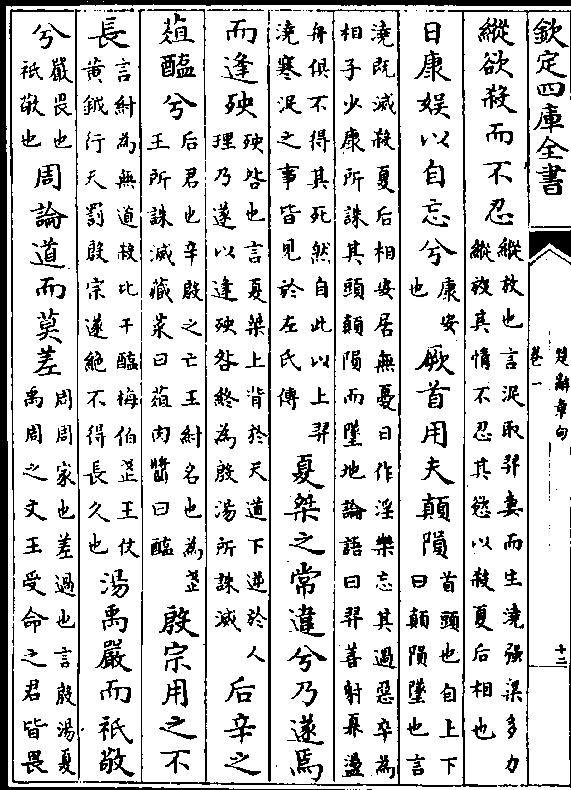 欽定四庫全書
楚辭章句
卷一
十二
縱欲殺而不忍
縱放也言浞取羿妻而生澆强梁多力
縱放其情不忍其慾以殺夏后相也
日康娱以自忘兮
康安
也
厥首用夫顛隕
首頭也自上下
曰顛隕墜也言
澆既滅殺夏后相安居無憂日作淫樂忘其過惡卒為
相子少康所誅其頭顛隕而墜地論語曰羿善射奡盪
舟俱不得其死然自此以上羿
澆寒浞之事皆見於左氏傳
夏桀之常違兮乃遂焉
而逢殃
殃咎也言夏桀上背於天道下逆於人
理乃遂以逢殃咎終為殷湯所誅滅
后辛之
葅醢兮
后君也辛殷之亡王紂名也為武
王所誅滅藏菜曰葅肉醬曰醢
殷宗用之不
長
言紂為無道殺比干醢梅伯武王仗
黄鉞行天罰殷宗遂絶不得長久也
湯禹嚴而祇敬
兮
嚴畏也
祇敬也
周論道而莫差
周周家也差過也言殷湯夏
禹周之文王受命之君皆畏